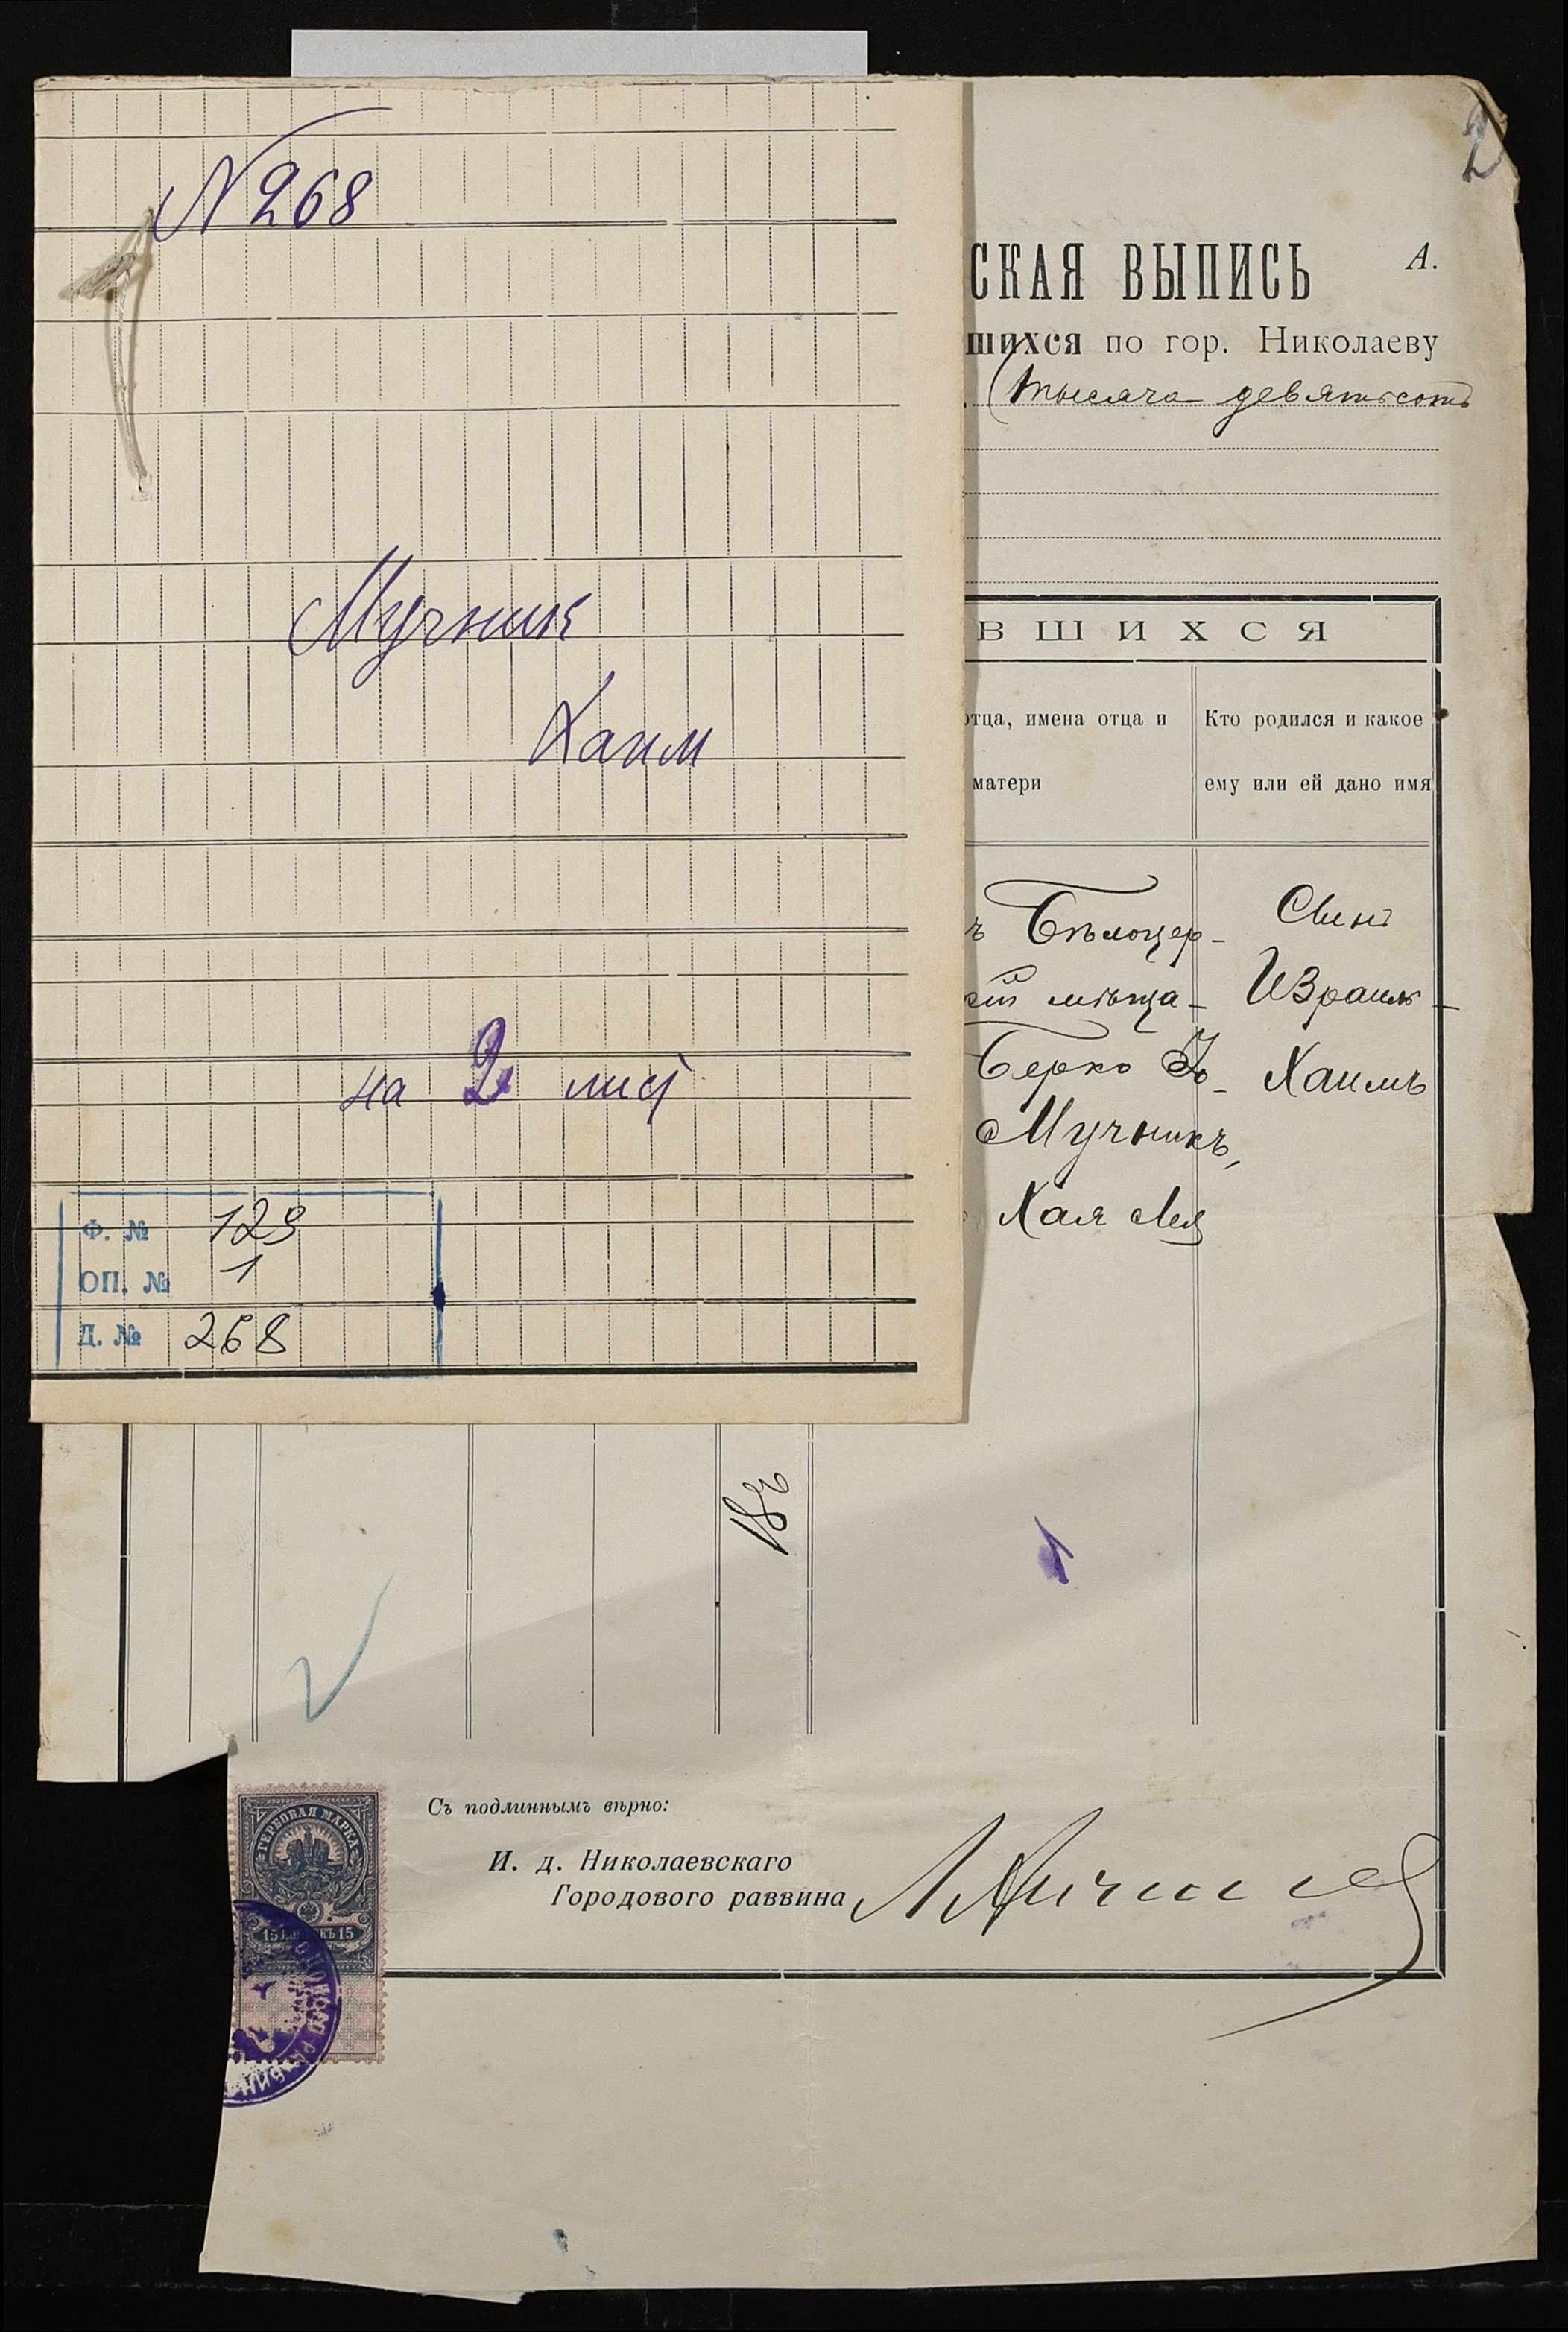 N 268
Мучник
Хаим
на 2 лис
Ф. № 129
ОП. № 1
Д. № 268
2
СКАЯ ВЫПИСЬ
А.
шихся по гор. Николаеву
(тысяча девятьсотъ
ВШИХСЯ
отца, имена отца и
матери
Кто родился и какое
ему или ей дано имя
ъ Бѣлоцер-
кій мѣща-
Берко
Мучникъ,
Хая Лея
Сынъ
Израиль-
Хаимъ
1
Съ подлиннымъ вѣрно:
И. д. Николаевскаго
Городового раввина
ГЕРБОВАЯ МАРКА
15 15